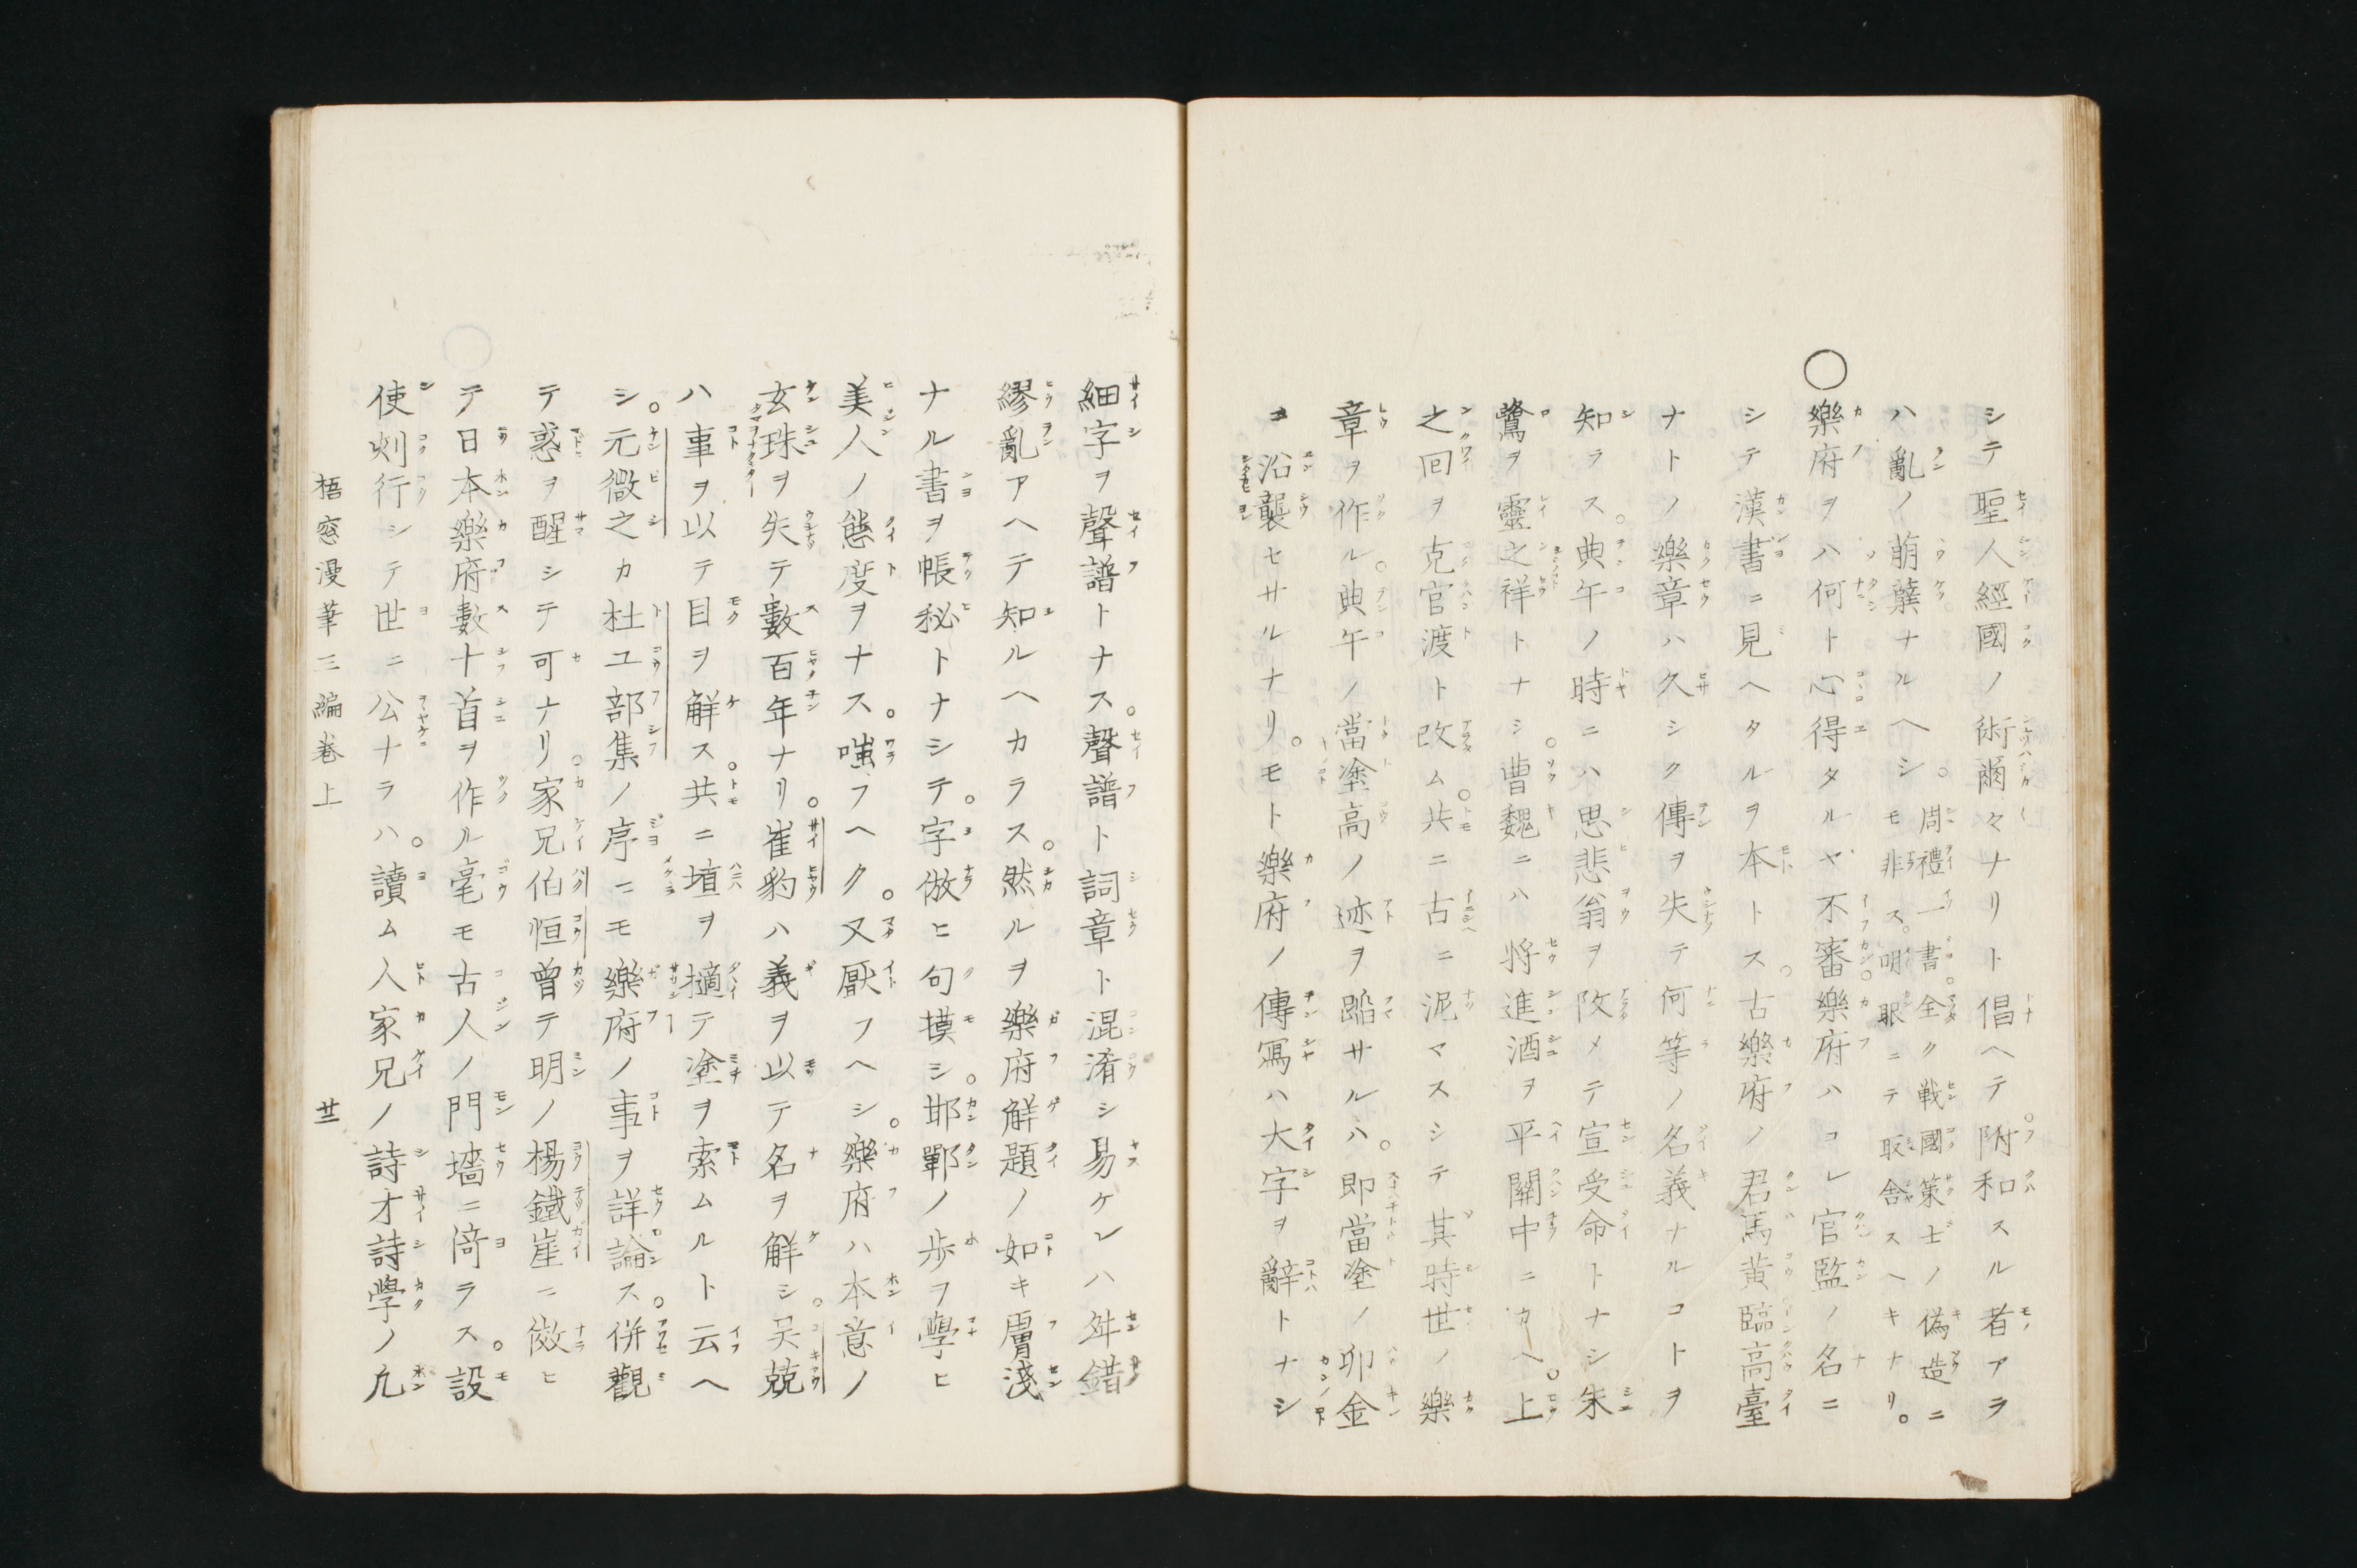 シテ聖人經國ノ術爾々ナリト倡ヘテ附和スル者アラ
ハ亂ノ萌蘖ナルヘシ。周禮一書。全ク戦國策士ノ偽造ニ
モ非ス。明眼ニテ取舎スヘキナリ。
○樂府ヲハ何ト心得タルヤ不審。樂府ハコレ官監ノ名ニ
シテ漢書ニ見ヘタルヲ本トス。古樂府ノ君馬黄臨高臺
ナトノ樂章ハ久シク傳ヲ失テ何等ノ名義ナルコトヲ
知ラス。典午ノ時ニハ思悲翁ヲ改メテ宣受命トナシ朱
鷺ヲ靈之祥トナシ。曹魏ニハ将進酒ヲ平關中ニカヘ。上
之回ヲ克官渡ト改ム。共ニ古ニ泥マスシテ其時世ノ樂
章ヲ作ル。典午ノ當塗高ノ迹ヲ蹈サルハ。即當塗ノ卯金
ヲ沿襲セサルナリ。モト樂府ノ傳寫ハ大字ヲ辭トナシ
細字ヲ聲譜トナス。聲譜ト詞章ト混淆シ易ケレハ舛錯
繆亂アヘテ知ルヘカラス。然ルヲ樂府解題ノ如キ膚淺
ナル書ヲ帳秘トナシテ。字倣ヒ句摸シ。邯鄲ノ歩ヲ學ヒ
美人ノ態度ヲナス。嗤フヘク。又厭フヘシ。樂府ハ本意ノ
玄珠ヲ失テ數百年ナリ。崔豹ハ義ヲ以テ名ヲ解シ。吴兢
ハ事ヲ以テ目ヲ解ス。共ニ埴ヲ擿テ塗ヲ索ムルト云ヘ
シ。元微之カ杜工部集ノ序ニモ樂府ノ事ヲ詳論ス。併觀
テ惑ヲ醒シテ可ナリ。家兄伯恒曾テ明ノ楊鐵崖ニ傚ヒ
テ日本樂府數十首ヲ作ル毫モ古人ノ門墻ニ倚ラス。設
使刻行シテ世ニ公ナラハ。讀ム人家兄ノ詩才詩學ノ凡
梧窓漫筆三編巻上 廿二